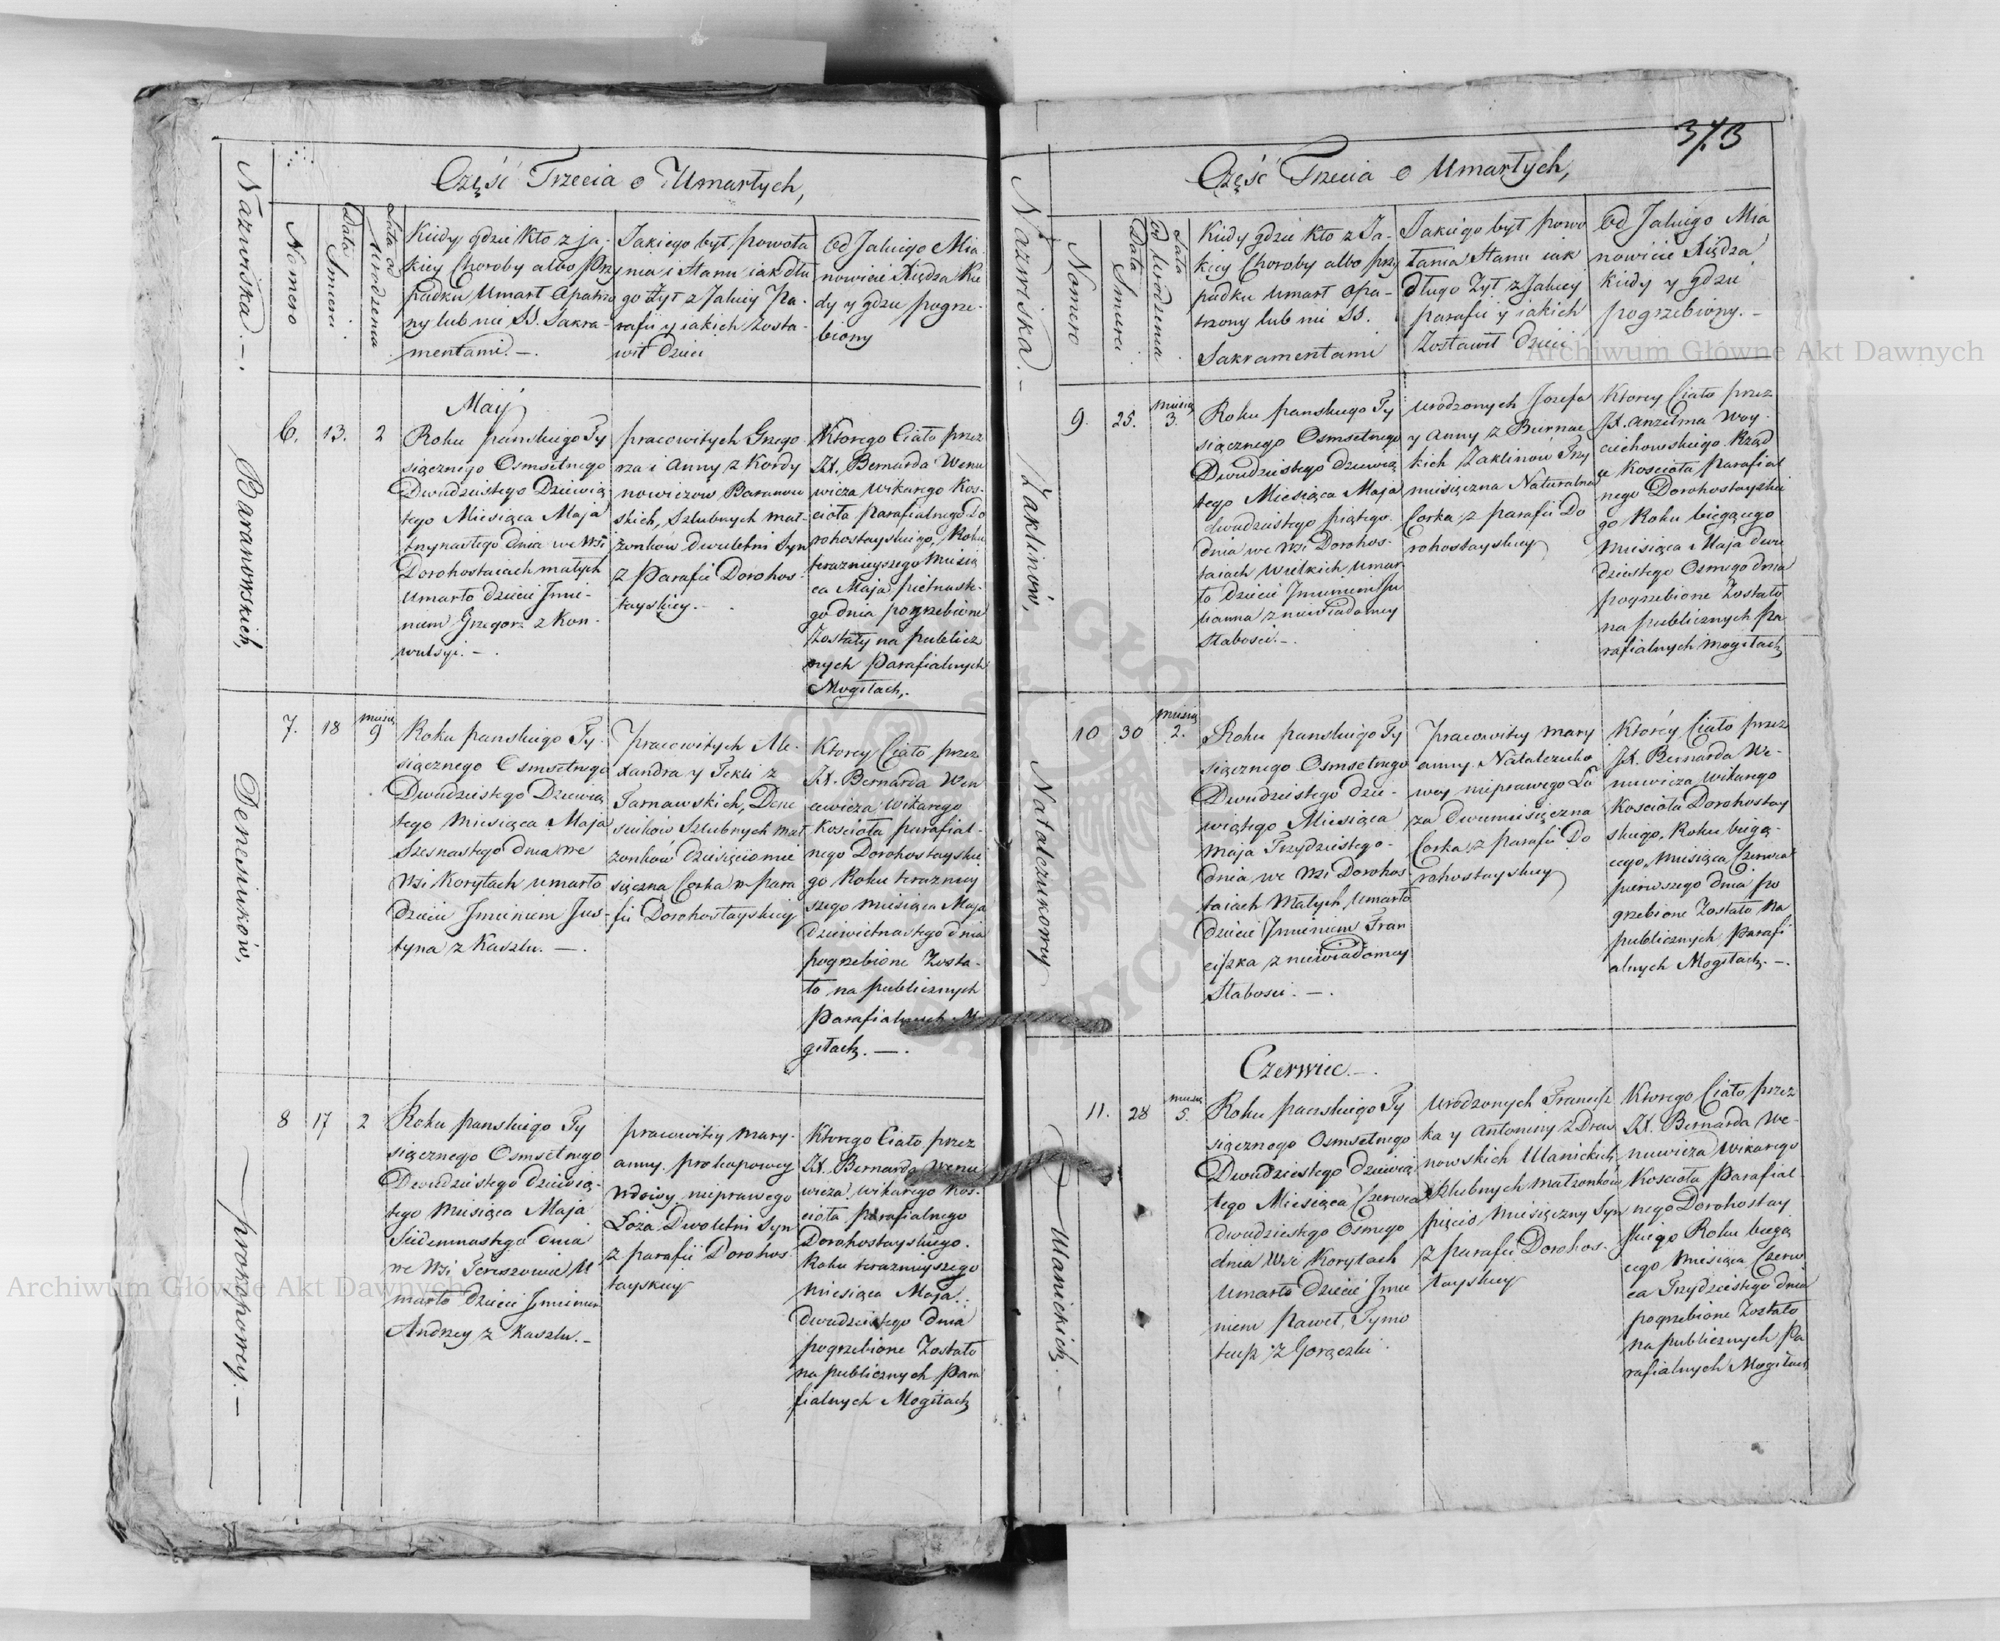 Część Trzecia o Umarłych,
Nazwiska. —.
Numero
Data Smierci.
Lata od Urodzenia
Kiedy gdzie kto z ja-
kiey Choroby albo Przy
padku Umarł opatrzo
ny lub nie SS. Sakra-
mentami. —.
Jakiego był powoła
nia i Stanu iak dłu
go żył z Jakiey Pa-
rafii y iakich zosta-
wił Dzieci
Od Jakiego Mia-
nowicie Xiędza Kie
dy y gdzie pogrze-
biony
Baranowskich,
May
6. 13. 2
Roku panskiego Ty
siącznego Osmsetnego
Dwudziestego Dziewią
tego Miesiąca Maja
trzynastego dnia we Wsi
Dorohostaiach małych
Umarło dziecie Jmie-
niem Grzegorz z Kon-
wulsyi. —.
pracowitych Grzego-
rza i Anny z Kordy
nowiczow Baranow
skich, Szlubnych mał-
żonków dwuletni Syn
z Parafii Dorohos-
tayskiey. —.
Ktorego Ciało przez
JX. Bernarda Wenu
wicza Wikarego Koś-
cioła Parafialnego Do
rohostayskiego, Roku
teraznieyszego Miesią
ca Maja pietnaste-
go dnia pogrzebione
Zostały na publicz
nych Parafialnych
Mogiłach.
Denesiuków,
7. 18 miesię 9
Roku panskiego Ty-
siącznego Osmsetnego
Dwudziestego Dziewią
tego Miesiąca Maja
Szesnastego dnia we
Wsi Korytach umarło
dziecie Jmieniem Jus-
tyna z Kaszlu. —.
Pracowitych Ale-
xandra y Tekli z
Tarnawskich, Dene
siuków Szlubnych mał
żonków dziesięcio mie
sięczna Corka w para
fii Dorohostayskiey
Ktorey Ciało przez
JX. Bernarda Wen
uwicza Wikarego
Kościoła parafial-
nego Dorohostayskie
go Roku terazniey
szego Miesiąca Maja
dziewietnastego dnia
pogrzebione Zosta-
ło na publicznych
Parafialnych Mo
giłach. —.
— prokopowey. —
8 17 2
Roku panskiego Ty
siącznego Osmsetnego
Dwudziestego dziewią-
tego Miesiąca Maja
Siedemnastego dnia
we Wsi Tereszowie U
marło dziecie Jmieniem
Andrzey z Kaszlu. —
pracowitey Mary-
anny prokopowey
Wdowy nieprawego
Łoża Dwoletni Syn
z parafii Dorohos-
tayskiey
Ktorego Ciało przez
JX. Bernarda Wenu
wicza, wikarego Koś-
cioła parafialnego
Dorohostayskiego.
Roku teraznieyszego
miesiąca Maja.
dwudziestego dnia
pogrzebione Zostało
na publicznych Para
fialnych Mogiłach
373
Część Trzecia o Umarłych,
Nazwiska. —
Numero
Data Smierci.
Lata od Urodzenia
Kiedy gdzie kto z Ja-
kiey Choroby albo przy
padku Umarł opa-
trzony lub nie SS.
Sakramentami
Jakiego był powo
łania Stanu iak
długo żył z Jakiey
parafii y iakich
Zostawił Dzieci
Od Jakiego Mia
nowicie Xiędza
Kiedy y gdzie
pogrzebiony. —
Zaklinów,
9. 25. miesię 3.
Roku panskiego Ty
siącznego Osmsetnego
Dwudziestego dziewią
tego Miesiąca Maja
dwudziestego piątego
dnia we Wsi Dorohos-
taiach Wielkich Umar
ło Dziecie Jmieniem Ju
lianna z niewiadomey
Słabosci. —.
Urodzonych Jozefa
y Anny z Burnac
kich Zaklinów Trzy
miesięczna Naturalna
Corka z parafii Do
rohostayskiey
Ktorey Ciało przez
JX. Anzelma Woy-
ciechowskiego Rząd
cę Kościoła Parafial
nego Dorohostayskie
go Roku biegącego
Miesiąca Maja dwu
dziestego Osmego dnia
pogrzebione Zostało
na publicznych pa
rafialnych mogiłach
Natalczukowey
10 30 miesię 2.
Roku panskiego Ty
siącznego Osmsetnego
Dwudziestego dzie-
wiątego Miesiąca
Maja Trzydziestego
dnia we Wsi Dorohos
taiach Małych, Umarło
dziecie Jmieniem Fran
ciszka z niewiadomey
Słabosci. —.
Pracowitey Mary
anny Natalczuko
wey nieprawego Ło
ża Dwumiesięczna
Corka z parafii Do
rohostayskiey
Którey Ciało przez
JX. Bernarda We-
nuwicza, wikarego
Kościoła Dorohostay
skiego. Roku biegą-
cego, Miesiąca Czerwca
pierwszego dnia po
grzebione Zostało na
publicznych Parafi
alnych Mogiłach. —.
— Ulanickich. —
Czerwiec. —.
11. 28 miesię 5.
Roku panskiego Ty
siącznego Osmsetnego
Dwudziestego dziewią
tego Miesiąca Czerwca
dwudziestego Osmego
dnia Wsi Korytach
Umarło Dziecie Jmie
niem Paweł, Tymo
teusz z Gorączki.
Urodzonych Francisz
ka y Antoniny z Drew
nowskich Ulanickich
Szlubnych małżonków
pięcio Miesięczny Syn
z parafii Dorohos-
tayskiey
Ktorego Ciało przez
JX. Bernarda We-
nuwicza Wikarego
Kościoła Parafial
nego Dorohostay
skiego Roku biegą
cego Miesiąca Czerw
ca Trzydziestego dnia
pogrzebione Zostało
na publicznych Pa
rafialnych Mogiłach
Archiwum Główne Akt Dawnych
Archiwum Główne Akt Dawnych